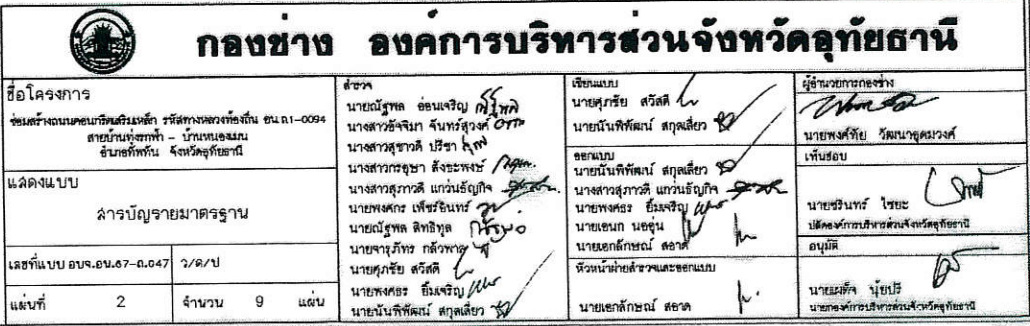 กองช่าง องค์การบริหารส่วนจังหวัดอุทัยธานี
ชื่อโครงการ
ซ่อมสร้างถนนคอนกรีตเสริมเหล็ก รหัสทางหลวงท้องถิ่น อน.ถ.1-0094
สายบ้านทุ่งรกฟ้า - บ้านหนองแมน
อำเภอทัพทัน จังหวัดอุทัยธานี
แสดงแบบ
สารบัญรายมาตรฐาน
เลขที่แบบ อบจ.อน.67-ถ.047 ว/ด/ป
แผ่นที่ 2 จำนวน 9 แผ่น
สำรวจ
นายณัฐพล อ่อนเจริญ
นางสาวอัจจิมา จันทร์สุวงศ์
นางสาวสุชาวดี ปรีชา
นางสาวกรอุษา สังขะพงษ์
นางสาวสุภาวดี แกว่นธัญกิจ
นายพงศกร เพ็ชร์อินทร์
นายณัฐพล สิทธิทูล
นายจารุภัทร
นายศุภชัย สวัสดี
นายพงศธร ยิ้มเจริญ
นายนันพิพัฒน์ สกุลเสี่ยว
เขียนแบบ
นายศุภชัย สวัสดี
นายนันพิพัฒน์ สกุลเสี่ยว
ออกแบบ
นายนันพิพัฒน์ สกุลเสี่ยว
นางสาวสุภาวดี แกว่นธัญกิจ
นายพงศธร ยิ้มเจริญ
นายเอนก นออุ่น
นายเอกลักษณ์ สอาด
หัวหน้าฝ่ายสำรวจและออกแบบ
นายเอกลักษณ์ สอาด
ผู้อำนวยการกองช่าง
นายพงศ์ทัย วัฒนาอุดมวงค์
เห็นชอบ
นายชรินทร์ ไชยะ
ปลัดองค์การบริหารส่วนจังหวัดอุทัยธานี
อนุมัติ
นายเผด็จ นุ้ยปรี
นายกองค์การบริหารส่วนจังหวัดอุทัยธานี